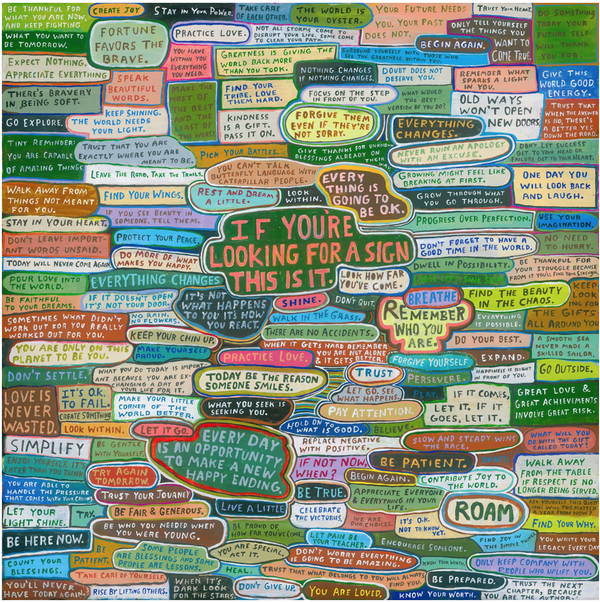 BE THANKFUL FOR
WHAT YOU ARE NOW,
AND KEEP FIGHTING
CREATE JOY
STAY IN YOUR POWER.
TAKE CARE
OF EACH OTHER.
THE WORLD IS
YOUR OYSTER.
YOUR FUTURE NEEDS
YOU. YOUR PAST
DOES NOT.
TRUST YOUR HEART.
DO SOMETHING
TODAY YOUR
FUTURE SELF
WILL THANK
YOU FOR
WHAT YOU WANT TO
DE TOMORROW.
FORTUNE
FAVORS THE
BRAVE.
PRACTICE LOVE.
NOT ALL STORMS COME TO
DISRUPT YOUR LIFE. SOME COME
BEGIN AGAIN.
ONLY TELL YOURSELF
THE THINGS YOU
WANT TO
COME TRUE.
EXPECT NOTHING.
APPRECIATE EVERYTHING
YOU HAVE
WITHIN YOU
EVERYTHING
YOU NEED.
GREATNESS IS GIVING THE
WORLD BACK MORE
THAN YOU TOOK.
SURROUND YOURSELF WITH THOSE WHO
SEE THE GREATNESS WITHIN YOU.
SPEAK
BEAUTIFUL
WORDS.
NOTHING CHANGES
IF NOTHING CHANGES.
DOUBT DOES NOT
DESERVE YOU.
REMEMBER WHAT
SPARKS A LIGHT
IN YOU.
GIVE THIS
WORLD GOOD
ENERGY.
THERE'S BRAVERY
IN BEING SOFT.
MAKE THE
MOST OF
THE BEST
AND THE
LEAST OF
THE WORST.
FIND YOUR
TRIBE. LOVE
THEM HARD.
FOCUS ON THE STEP
IN FRONT OF YOU.
WHAT WOULD THE
BEST
VERSION OF YOU DO?
OLD WAYS
WON'T OPEN
NEW DOORS
TRUST THAT
WHEN THE ANSWER
IS NO, THERE'S
A BETTER YES
DOWN THE ROAD.
GO EXPLORE.
KEEP SHINING.
THE WORLD NEEDS
YOUR LIGHT.
KINDNESS
IS A GIFT.
PASS IT ON.
FORGIVE THEM
EVEN IF THEY'RE
NOT SORRY.
EVERYTHING
CHANGES.
TINY REMINDER:
YOU ARE CAPABLE
OF AMAZING THINGS
TRUST THAT YOU ARE
EXACTLY WHERE YOU ARE
MEANT TO BE.
PICK YOUR BATTLES.
NEVER RUIN AN APOLOGY
WITH AN EXCUSE.
DON'T LET SUCCESS
GET TO YOUR HEAD OR
FAILURE GET TO YOUR HEART.
LEAVE THE ROAD, TAKE THE TRAILS.
YOU CAN'T TALK
BUTTERFLY LANGUAGE WITH
CATERPILLAR PEOPLE.
EVERY
THING IS
GOING TO
BE O.K.
GROWING MIGHT FEEL LIKE
BREAKING AT FIRST.
ONE DAY YOU
WILL LOOK BACK
AND LAUGH.
WALK AWAY FROM
THINGS NOT MEANT
FOR YOU.
FIND YOUR WINGS.
REST AND DREAM
A LITTLE.
LOOK
WITHIN.
GROW THROUGH WHAT
YOU GO THROUGH.
STAY IN YOUR HEART.
IF YOU SEE BEAUTY IN
SOMEONE, TELL THEM.
IF YOU'RE
LOOKING FOR A SIGN
THIS IS IT.
PROGRESS OVER PERFECTION.
USE YOUR
IMAGINATION.
DON'T LEAVE IMPORT
ANT WORDS UNSAID.
PROTECT YOUR PEACE.
DON'T FORGET TO HAVE A
GOOD TIME IN THE WORLD.
NO NEED
TO HURRY.
TODAY WILL NEVER COME AGAIN
DO MORE OF WHAT
MAKES YOU HAPPY.
DWELL IN POSSIBILITY.
BE THANKFUL FOR
YOUR STRUGGLE BECAUSE
POUR LOVE INTO
THE WORLD.
EVERYTHING CHANGES
LOOK HOW FAR
YOU'VE COME.
BE FAITHFUL
TO YOUR DREAMS.
IF IT DOESN'T OPEN
IT'S NOT YOUR DOOR.
IT'S NOT
WHAT HAPPENS
TO YOU IT'S HOW
YOU REACT.
SHINE.
DON'T QUIT.
BREATHE
REMEMBER
WHO YOU
ARE.
FIND THE BEAUTY
IN THE CHAOS.
KEEP
LOOKING
FOR
THE GIFTS
ALL AROUND
YOU
SOMETIMES WHAT DIDN'T
WORK OUT FOR YOU REALLY
WORKED OUT FOR YOU.
NO RAIN.
NO FLOWERS.
WALK IN THE GRASS.
EVERYTHING
IS POSSIBLE.
KEEP YOUR CHIN UP.
THERE ARE NO ACCIDENTS.
DO YOUR BEST.
A SMOOTH SEA
NEVER MADE A
SKILLED SAILOR.
YOU ARE ONLY ON THIS
PLANET TO BE YOU.
MAKE YOURSELF
PROUD.
PRACTICE LOVE.
WHEN IT GETS HARD REMEMBER
YOU ARE NOT ALONE
FORGIVE YOURSELF
EXPAND.
DON'T SETTLE.
WHAT YOU DO TODAY IS IMPORT
ANT BECAUSE YOU ARE EX
CHANGING A DAY OF
YOUR LIFE FOR IT.
TODAY BE THE REASON
SOMEONE SMILES.
TRUST
PERSEVERE.
HAPPINESS IS RIGHT
IN FRONT OF YOU.
GO OUTSIDE.
LOVE IS
NEVER
WASTED.
IT'S O.K.
TO FAIL.
CREATE SOMETHING
MAKE YOUR LITTLE
CORNER OF THE
WORLD BETTER.
WHAT YOU SEEK IS
SEEKING YOU.
LET GO. SEE
WHAT HAPPENS.
PAY ATTENTION.
PLAY.
IF IT COMES,
LET IT. IF IT
GOES, LET IT.
GREAT LOVE &
GREAT ACHIEVMENTS
INVOLVE GREAT RISK.
LOOK WITHIN.
LET IT GO.
HOLD ON TO
WHAT IS GOOD.
BELIEVE.
SIMPLIFY
BE GENTLE
WITH YOURSELF.
EVERY DAY
IS AN OPPORTUNITY
TO MAKE A NEW
HAPPY ENDING.
REPLACE NEGATIVE
WITH POSITIVE.
SLOW AND STEADY WINS
THE RACE.
WHAT WILL YOU
DO WITH THE GIFT
CALLED TODAY?
ENJOY YOURSELF IT'S
LATER THAN YOU THINK
TRY AGAIN
TOMORROW.
IF NOT NOW,
WHEN?
BE PATIENT.
WALK AWAY
FROM THE TABLE
IF RESPECT IS NO
LONGER BEING
SERVED.
YOU ARE ABLE TO
HANDLE THE PRESSURE
THAT COMES WITH
TRUST YOUR JOURNEY.
BEGIN AGAIN.
CONTRIBUTE JOY TO
THE WORLD.
BE TRUE.
APPRECIATE EVERYONE
& EVERYTHING IN
YOUR LIFE.
LET YOUR
LIGHT SHINE.
BE FAIR & GENEROUS.
LIVE A LITTLE
CELEBRATE
THE VICTORIES
WE ARE
OUR CHOICES.
IT'S O.K.
NOT TO KNOW
YET.
ROAM
FIND YOUR WHY.
BE HERE NOW.
BE WHO YOU NEEDED
WHEN YOU WERE YOUNG.
BE PROUD OF
HOW FAR YOU'VE COME.
LET PAIN BE
YOUR TEACHER.
ENCOURAGE SOMEONE.
FIND JOY IN
THE SIMPLE
YOU WRITE YOUR
LEGACY EVERY DAY
COUNT YOUR
BLESSINGS.
BE
PATIENT.
SOME PEOPLE
ARE BLESSINGS AND SOME
PEOPLE ARE LESSONS.
YOU ARE
SPECIAL
ACT IT.
DON'T WORRY EVERYTHING
IS GOING TO BE AMAZING.
ONLY KEEP COMPANY
WITH PEOPLE WHO UPLIFT YOU.
TAKE CARE OF YOURSELF
HEAL.
TRUST THAT WHAT BELONGS TO YOU WILL ALWAYS
FIND YOU
YOU'LL NEVER
HAVE TODAY AGAIN.
RISE BY LIFTING OTHERS.
WHEN IT'S
DARK LOOK
FOR THE STARS.
DON'T GIVE UP.
YOU ARE LOVED.
BE PREPARED.
KNOW YOUR WORTH.
TRUST THE NEXT
CHAPTER, BECAUSE
YOU ARE THE AUTHOR!